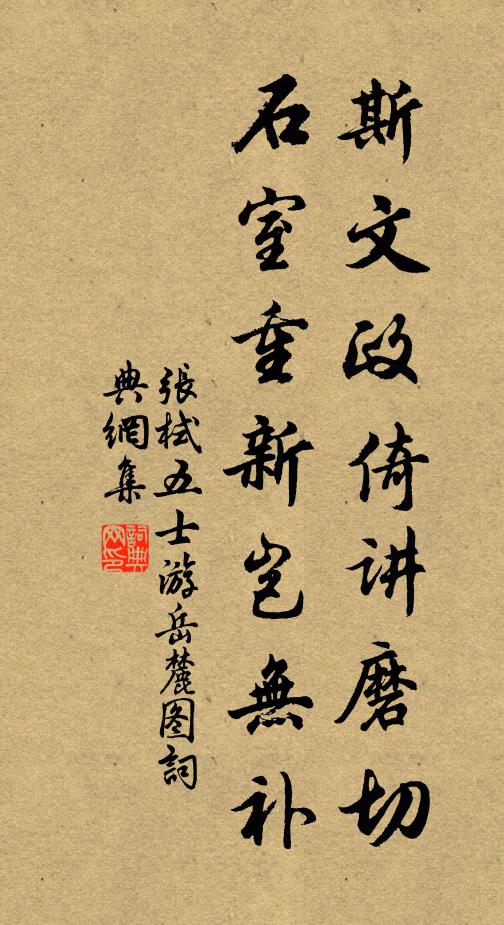 斯文政倚讲磨切
石室重新岂無补
張栻五士游岳麓图詞
典網集
詞典網印